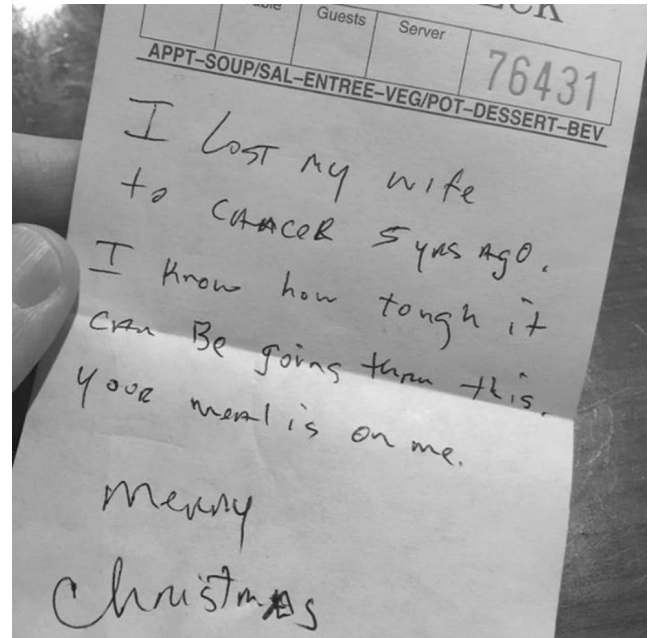 Guests Server
76431
APPT–SOUP/SAL–ENTREE–VEG/POT–DESSERT–BEV
I Lost my wife
to CANCER 5 yrs Ago.
I know how tough it
can Be going thru this.
your meal is on me.
Merry
Christmas